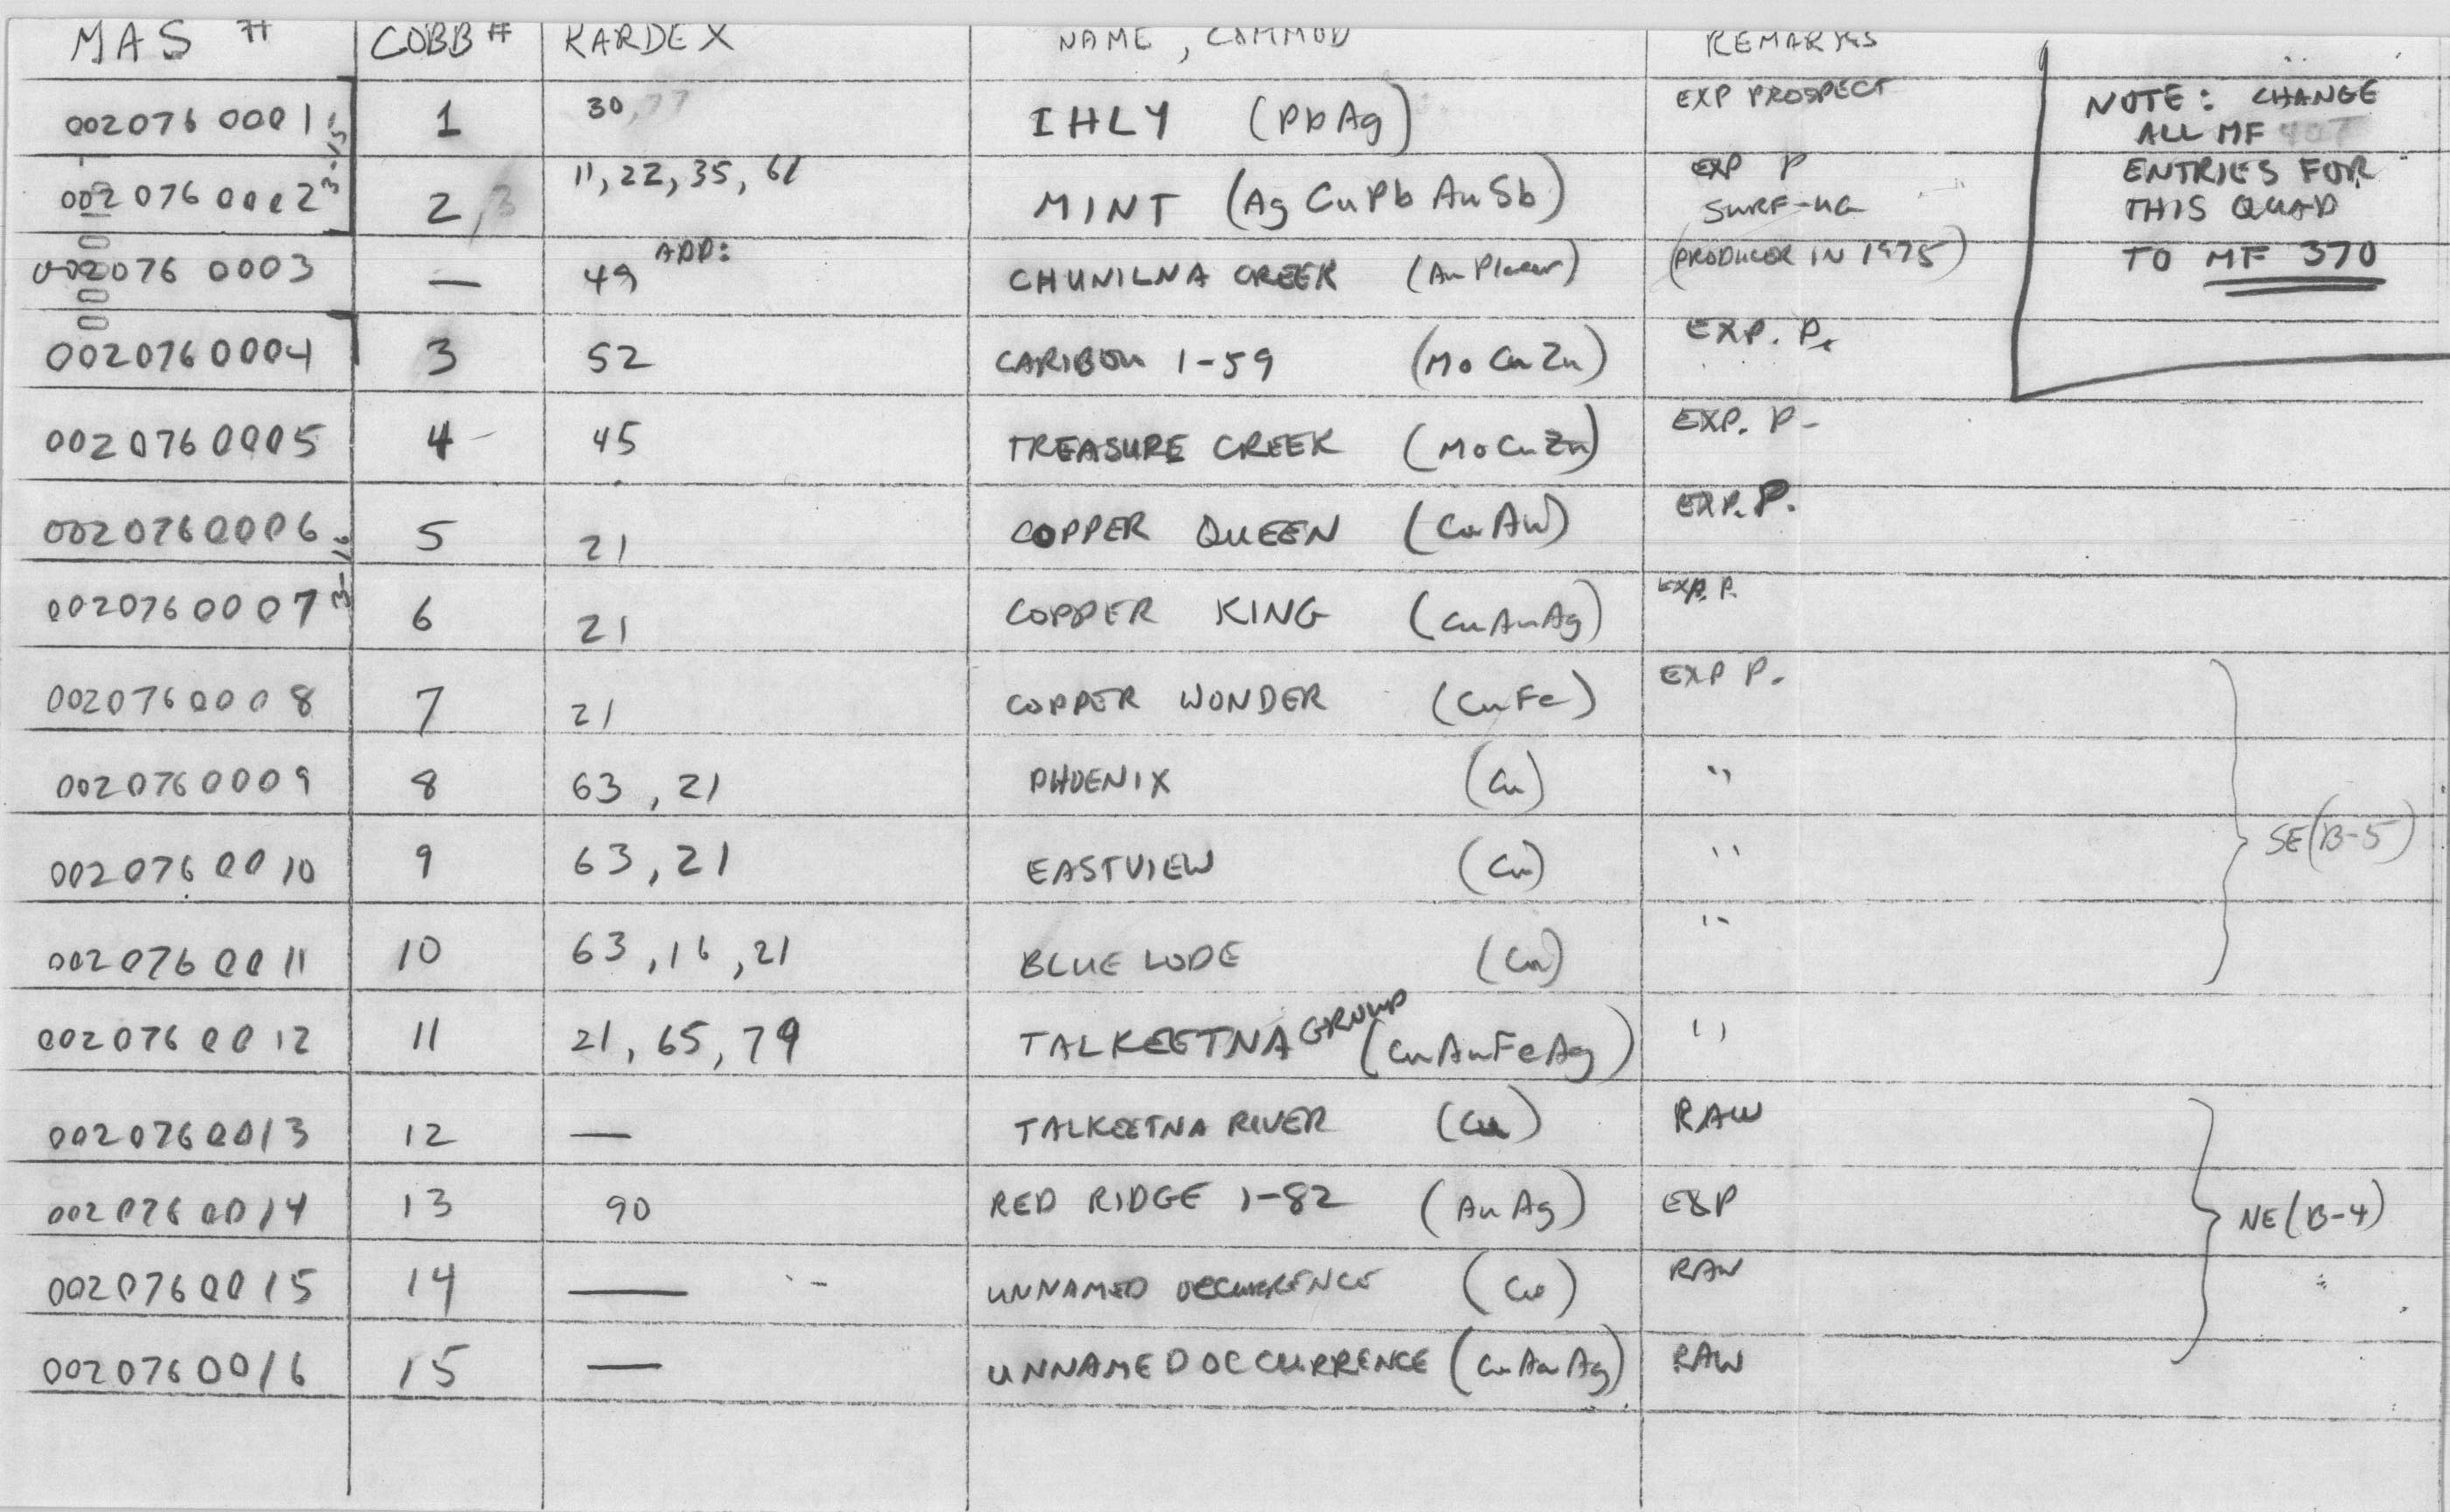 MAS # COBB # KARDEX NAME, COMMOD REMARKS
0020760001 1 30, 77 IHLY (PbAg) EXP PROSPECT
0020760002 2, 3 11, 22, 35, 61 MINT (Ag Cu Pb Au Sb) EXP P SURF-UG
0020760003 — 49 ADD: CHUNILNA CREEK (Au Placer) (PRODUCER IN 1975)
0020760004 3 52 CARIBOU 1-59 (Mo Cu Zn) EXP. P.
0020760005 4 - 45 TREASURE CREEK (MoCuZn) EXP. P-
0020760006 5 21 COPPER QUEEN (CuAu) EXP. P.
0020760007 6 21 COPPER KING (CuAuAg) EXP. P.
0020760008 7 21 COPPER WONDER (CuFe) EXP P.
0020760009 8 63, 21 PHOENIX (Cu) "
0020760010 9 63, 21 EASTVIEW (Cu) "
0020760011 10 63, 16, 21 BLUE LODE (Cu) "
0020760012 11 21, 65, 79 TALKEETNA GROUP (CuAuFeAg) "
0020760013 12 — TALKEETNA RIVER (Cu) RAW
0020760014 13 90 RED RIDGE 1-82 (Au Ag) EXP
0020760015 14 — UNNAMED OCCURRENCE (Cu) RAW
0020760016 15 — UNNAMED OCCURRENCE (Cu Au Ag) RAW
3-15
3-16
NOTE: CHANGE
ALL MF
ENTRIES FOR
THIS QUAD
TO MF 370
SE(B-5)
NE(B-4)